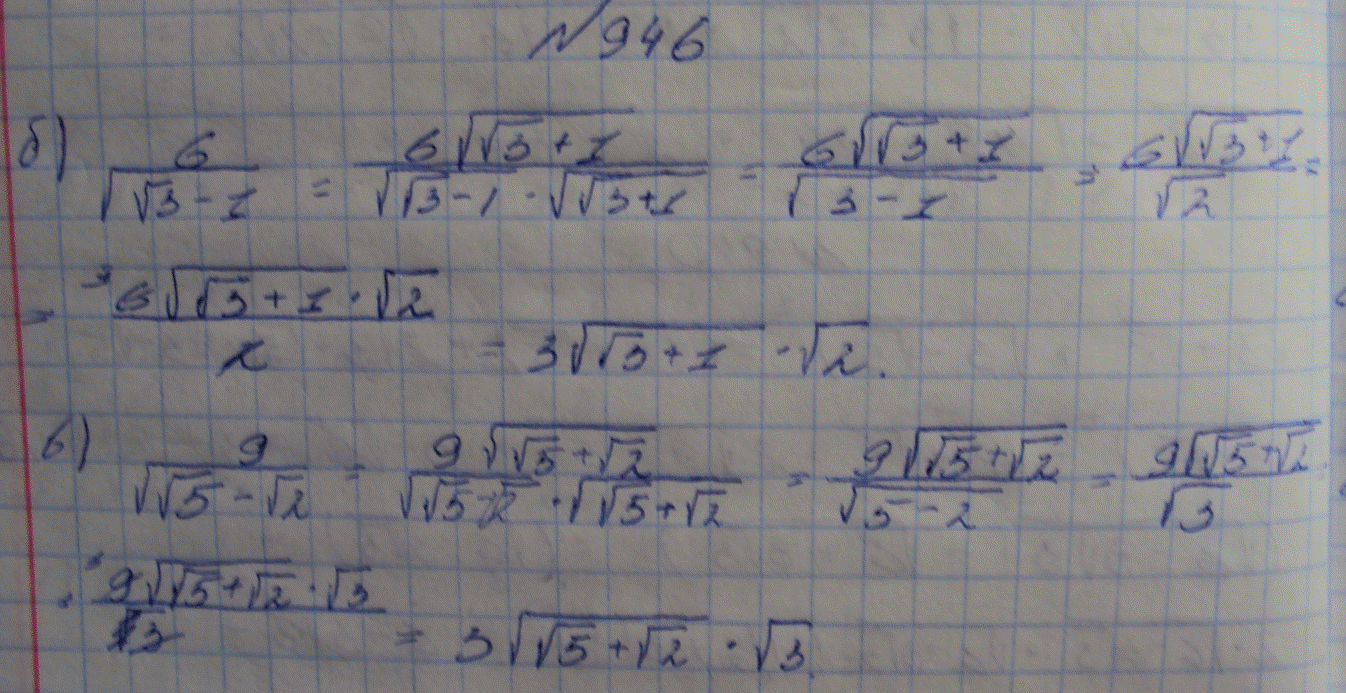 №946
б) 6/√(√3-1) = 6√(√3+1)/(√(√3-1)·√(√3+1)) = 6√(√3+1)/√(3-1) = 6√(√3+1)/√2 =
= ³6√(√3+1)·√2/2 = 3√(√3+1)·√2.
в) 9/√(√5-√2) = 9√(√5+√2)/(√(√5-2)·√(√5+√2)) = 9√(√5+√2)/√(5-2) = 9√(√5+√2)/√3
= ³9√(√5+√2)·√3/3 = 3√(√5+√2)·√3